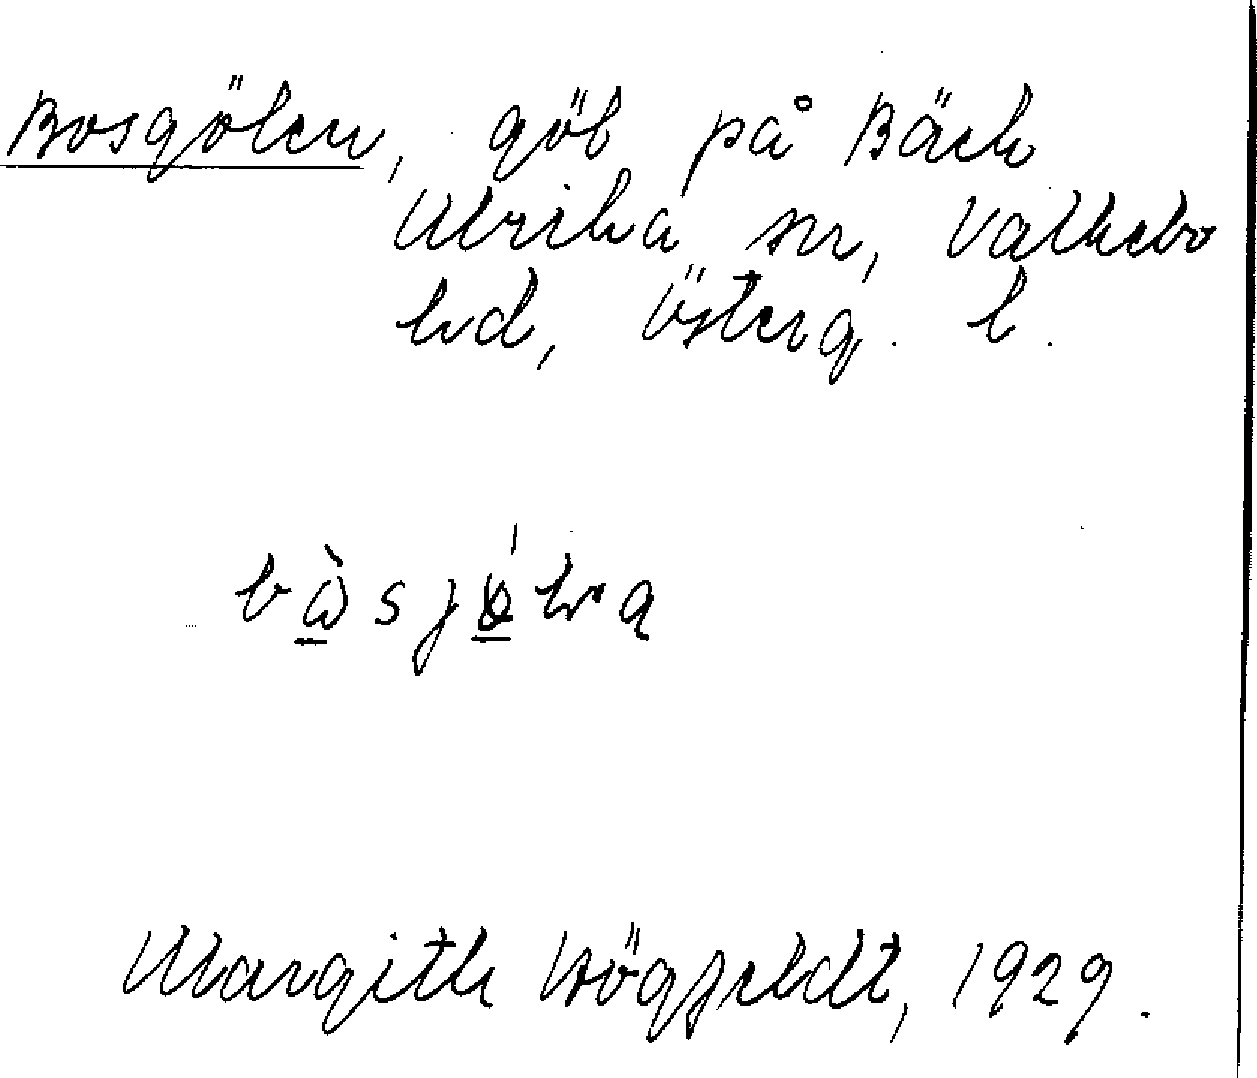 Bosgölen, göl på Bäck
Ulrika sn, Valkebo
hd, Österg. l.
Margith Högfeldt, 1929.